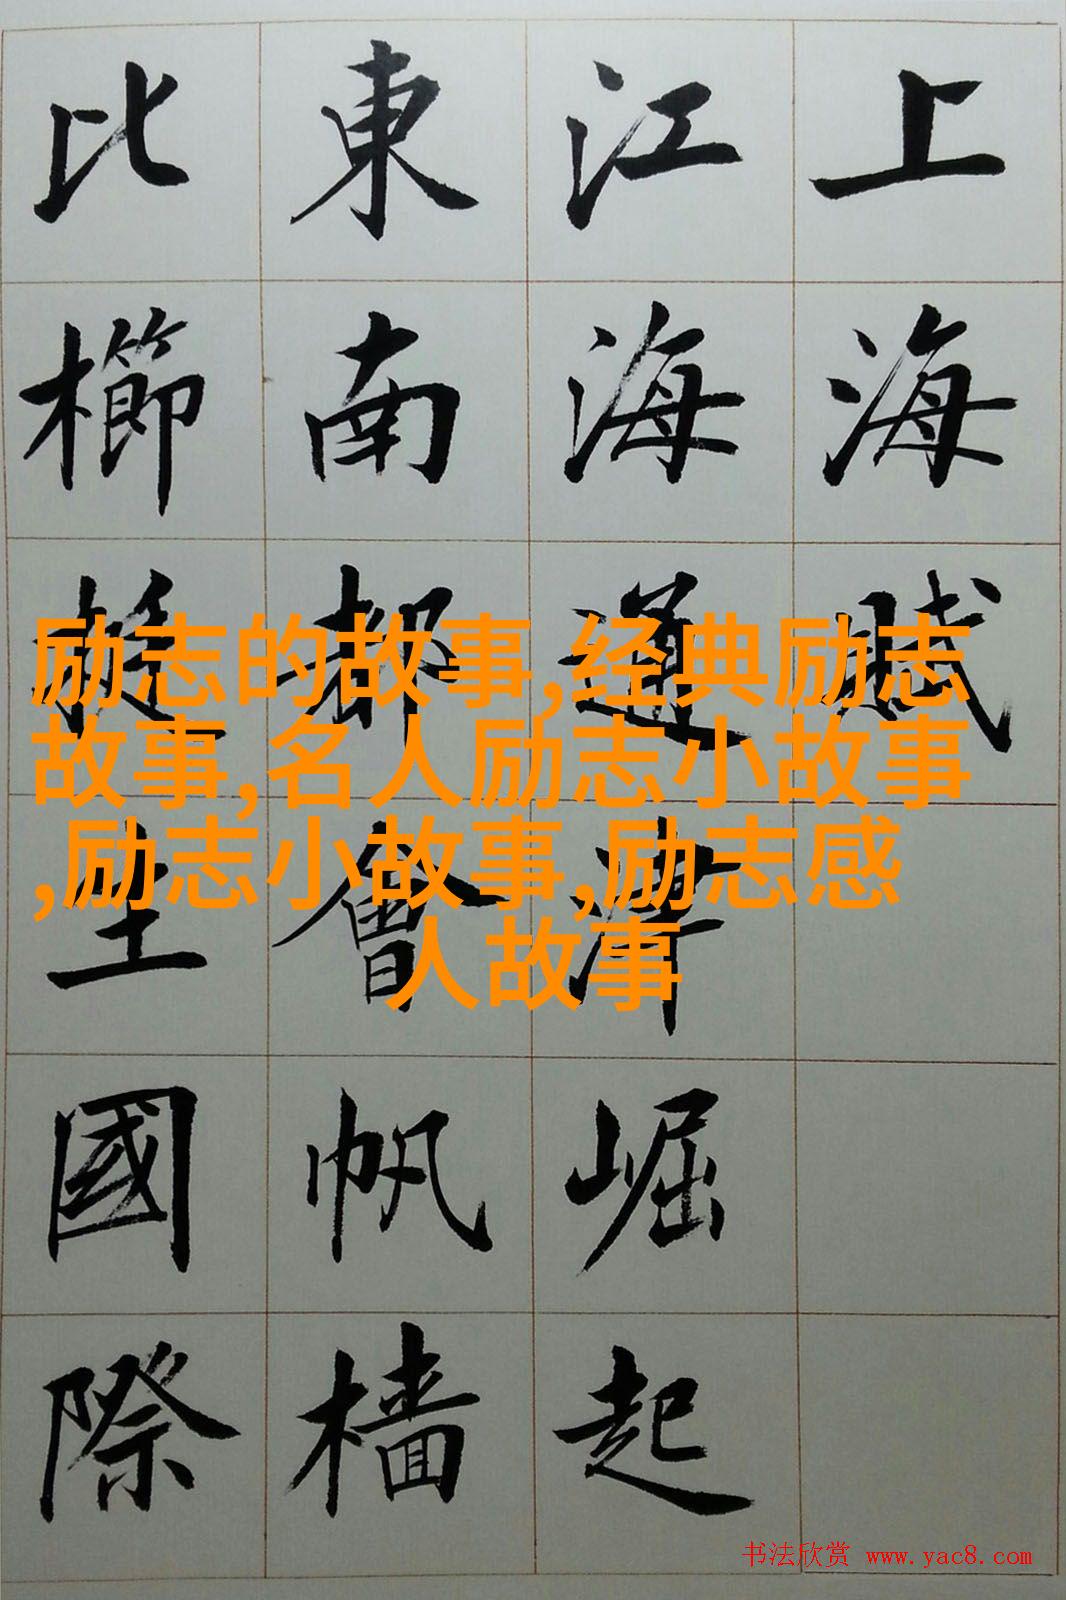 上海賦
江海通津崛起
東南都會帆檣
比櫛生國際
励志的故事,经典励志
故事,名人励志小故事
,励志小故事,励志感
人故事
书法欣赏 www.yac8.com